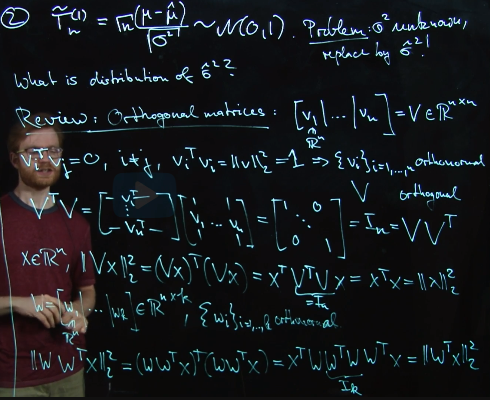 ② T̃ₙ⁽¹⁾ = √n(μ-μ̂)/√σ² ~ N(0,1). Problem: σ² unknown,
replace by σ̂²!
What is distribution of σ̂²?
Review: Orthogonal matrices: [v₁|...|vₙ] = V ∈ ℝⁿˣⁿ
∈ ℝⁿ
vᵢᵀvⱼ=0, i≠j, vᵢᵀvᵢ=‖v‖₂²=1 ⇒ {vᵢ}ᵢ₌₁,...,ₙ orthonormal
V orthogonal
VᵀV = [-v₁ᵀ- ... -vₙᵀ-][v₁ ... vₙ] = [1 0 ⋱ 0 1] = Iₙ = VVᵀ
x∈ℝⁿ, ‖Vx‖₂² = (Vx)ᵀ(Vx) = xᵀVᵀVx = xᵀx = ‖x‖₂²
=Iₙ
W=[w₁|...|wₖ] ∈ ℝⁿˣᵏ, {wᵢ}ᵢ₌₁,...,ₖ orthonormal
∈ ℝⁿ
‖WWᵀx‖₂² = (WWᵀx)ᵀ(WWᵀx) = xᵀWWᵀWWᵀx = ‖Wᵀx‖₂²
Iₖ